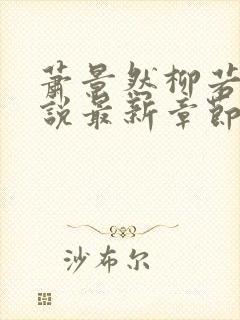 萧景然柳若
说最新章节
沙布尔